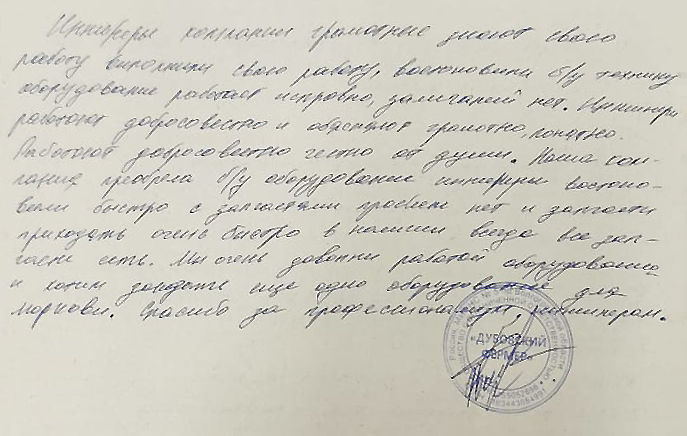 Инженеры компании грамотные знают свою
работу выполнили свою работу, востоновили б/у технику
оборудование работает исправно, замечаний нет. Инженеры
работают добросовестно и объясняют грамотно, понятно.
Работают добросовестно честно от души. Наша ком-
пания преобрела б/у оборудование инженеры востоно-
вили быстро с запчастями проблем нет и запчасти
приходять очень быстро в наличии всегда все зап-
части есть. Мы очень довольны работой оборудования
и хотим заказать еще одно оборудование для
моркови. Спасибо за профессионализм инженерам.
«ДУБОВСКИЙ
ФЕРМЕР»